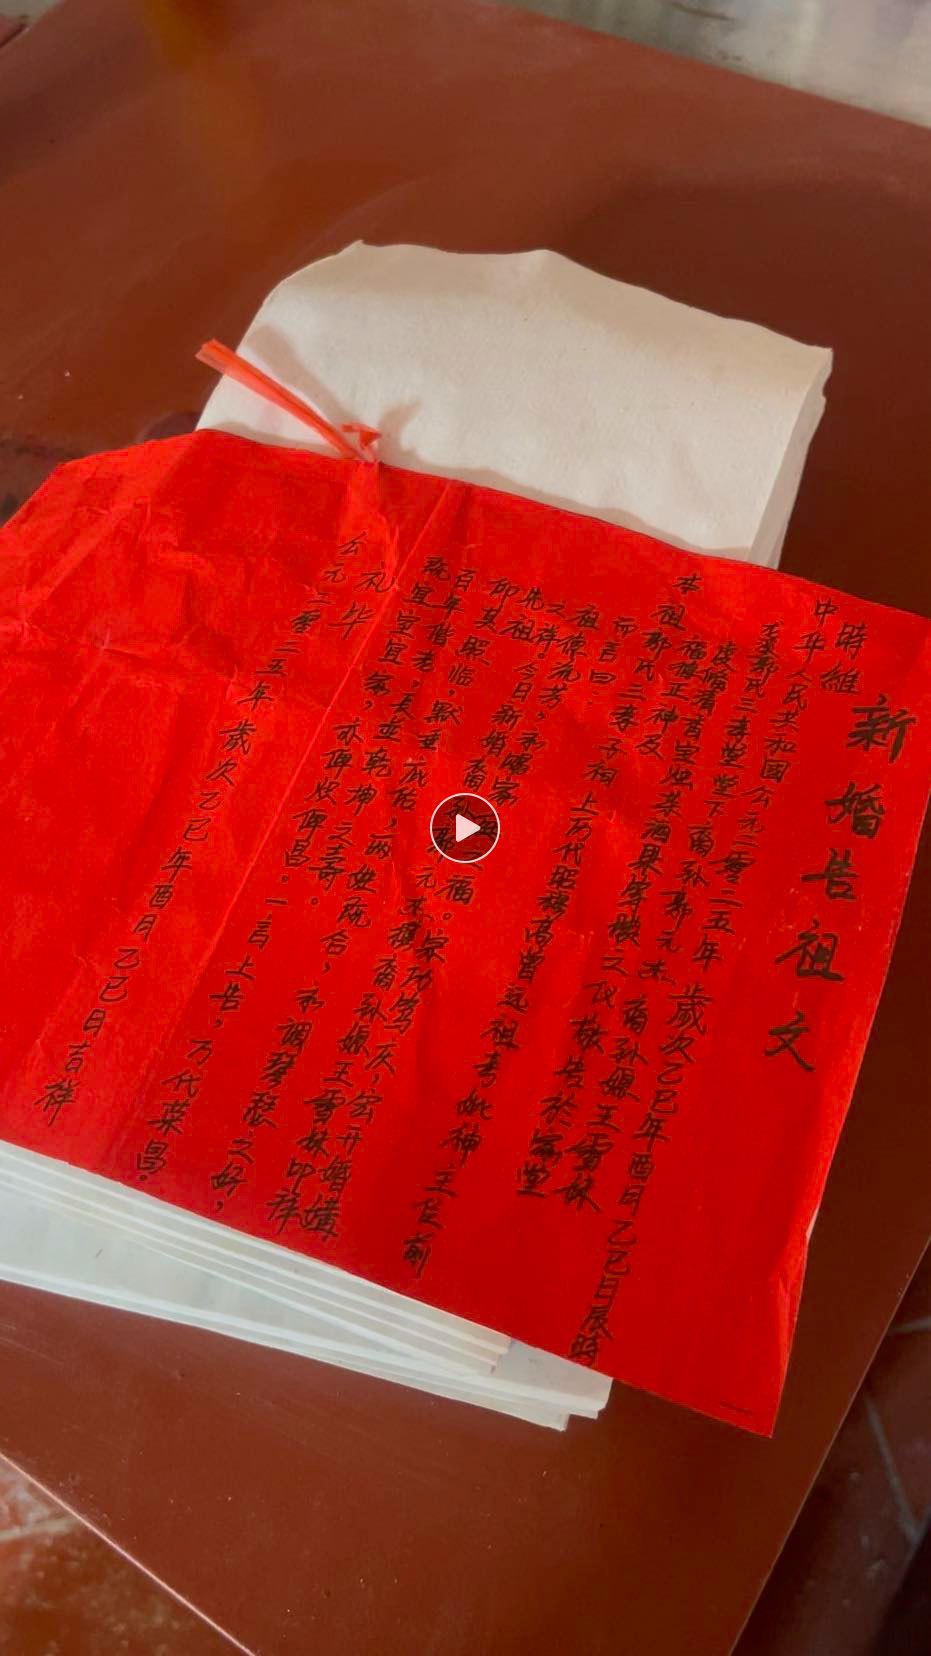 新婚告祖文
時維
中华人民共和國公元二零二五年歲次乙巳年酉月乙巳日辰時
郭氏三孝堂堂下裔孙郭元杰裔孙媳王雪妹
虔备香宝烛茶酒果等檄之仪敬告於家堂
本祖福德正神及
祖郭氏三孝子相上历代昭穆高曾远祖考妣神主位前
而言曰:
祖德流芳,
之祥。今日新婚裔孙郭元杰裔孙媳王雪妹叩拜
先祖
仰其照临,默垂庇佑,
百年偕老,长並乾坤之寿。两姓既合,永调琴瑟之好,
既宜室宜家,亦俾炽俾昌。一言上告,万代荣昌。
礼毕
公元二零二五年歲次乙巳年酉月乙巳日吉祥